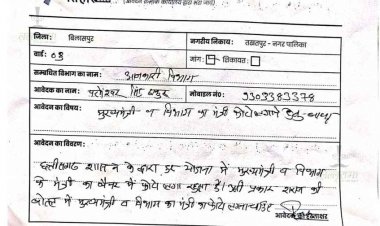 (आवेदन समस्त कार्यालय द्वारा भरा जाये)
जिला: बिलासपुर
नगरीय निकाय: तखतपुर - नगर पालिका
वार्ड: 08
मांग: शिकायत:
सम्बंधित विभाग का नाम: आबकारी विभाग
आवेदक का नाम: सिंह ठाकुर
मोबाइल नं०: 9303383378
आवेदन का विषय: मुख्यमंत्री व विभाग का मंत्री फोटो लगाने हेतु
आवेदन का विवरण:
छत्तीसगढ़ शासन के द्वारा हर योजना में मुख्यमंत्री व विभाग
के मंत्री का बैनर में फोटो लगा रहता है। उसी प्रकार शराब की
बोतल में मुख्यमंत्री व विभाग का मंत्री का फोटो लगना चाहिए
आवेदक के हस्ताक्षर